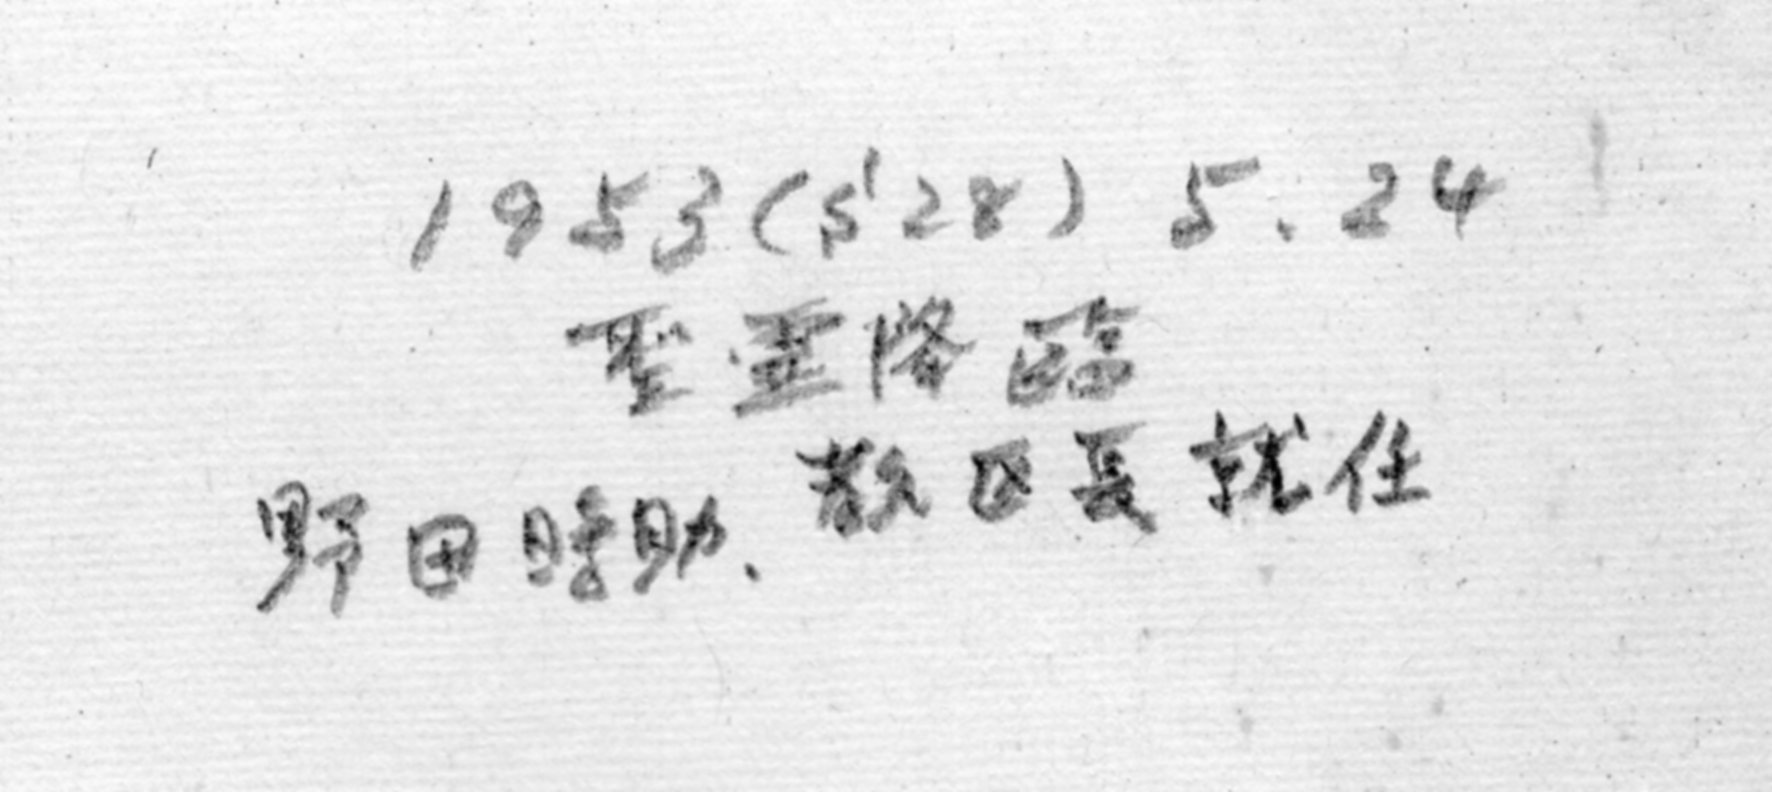 1953(S'28) 5.24
聖霊降臨
教区長就任
野田時助.